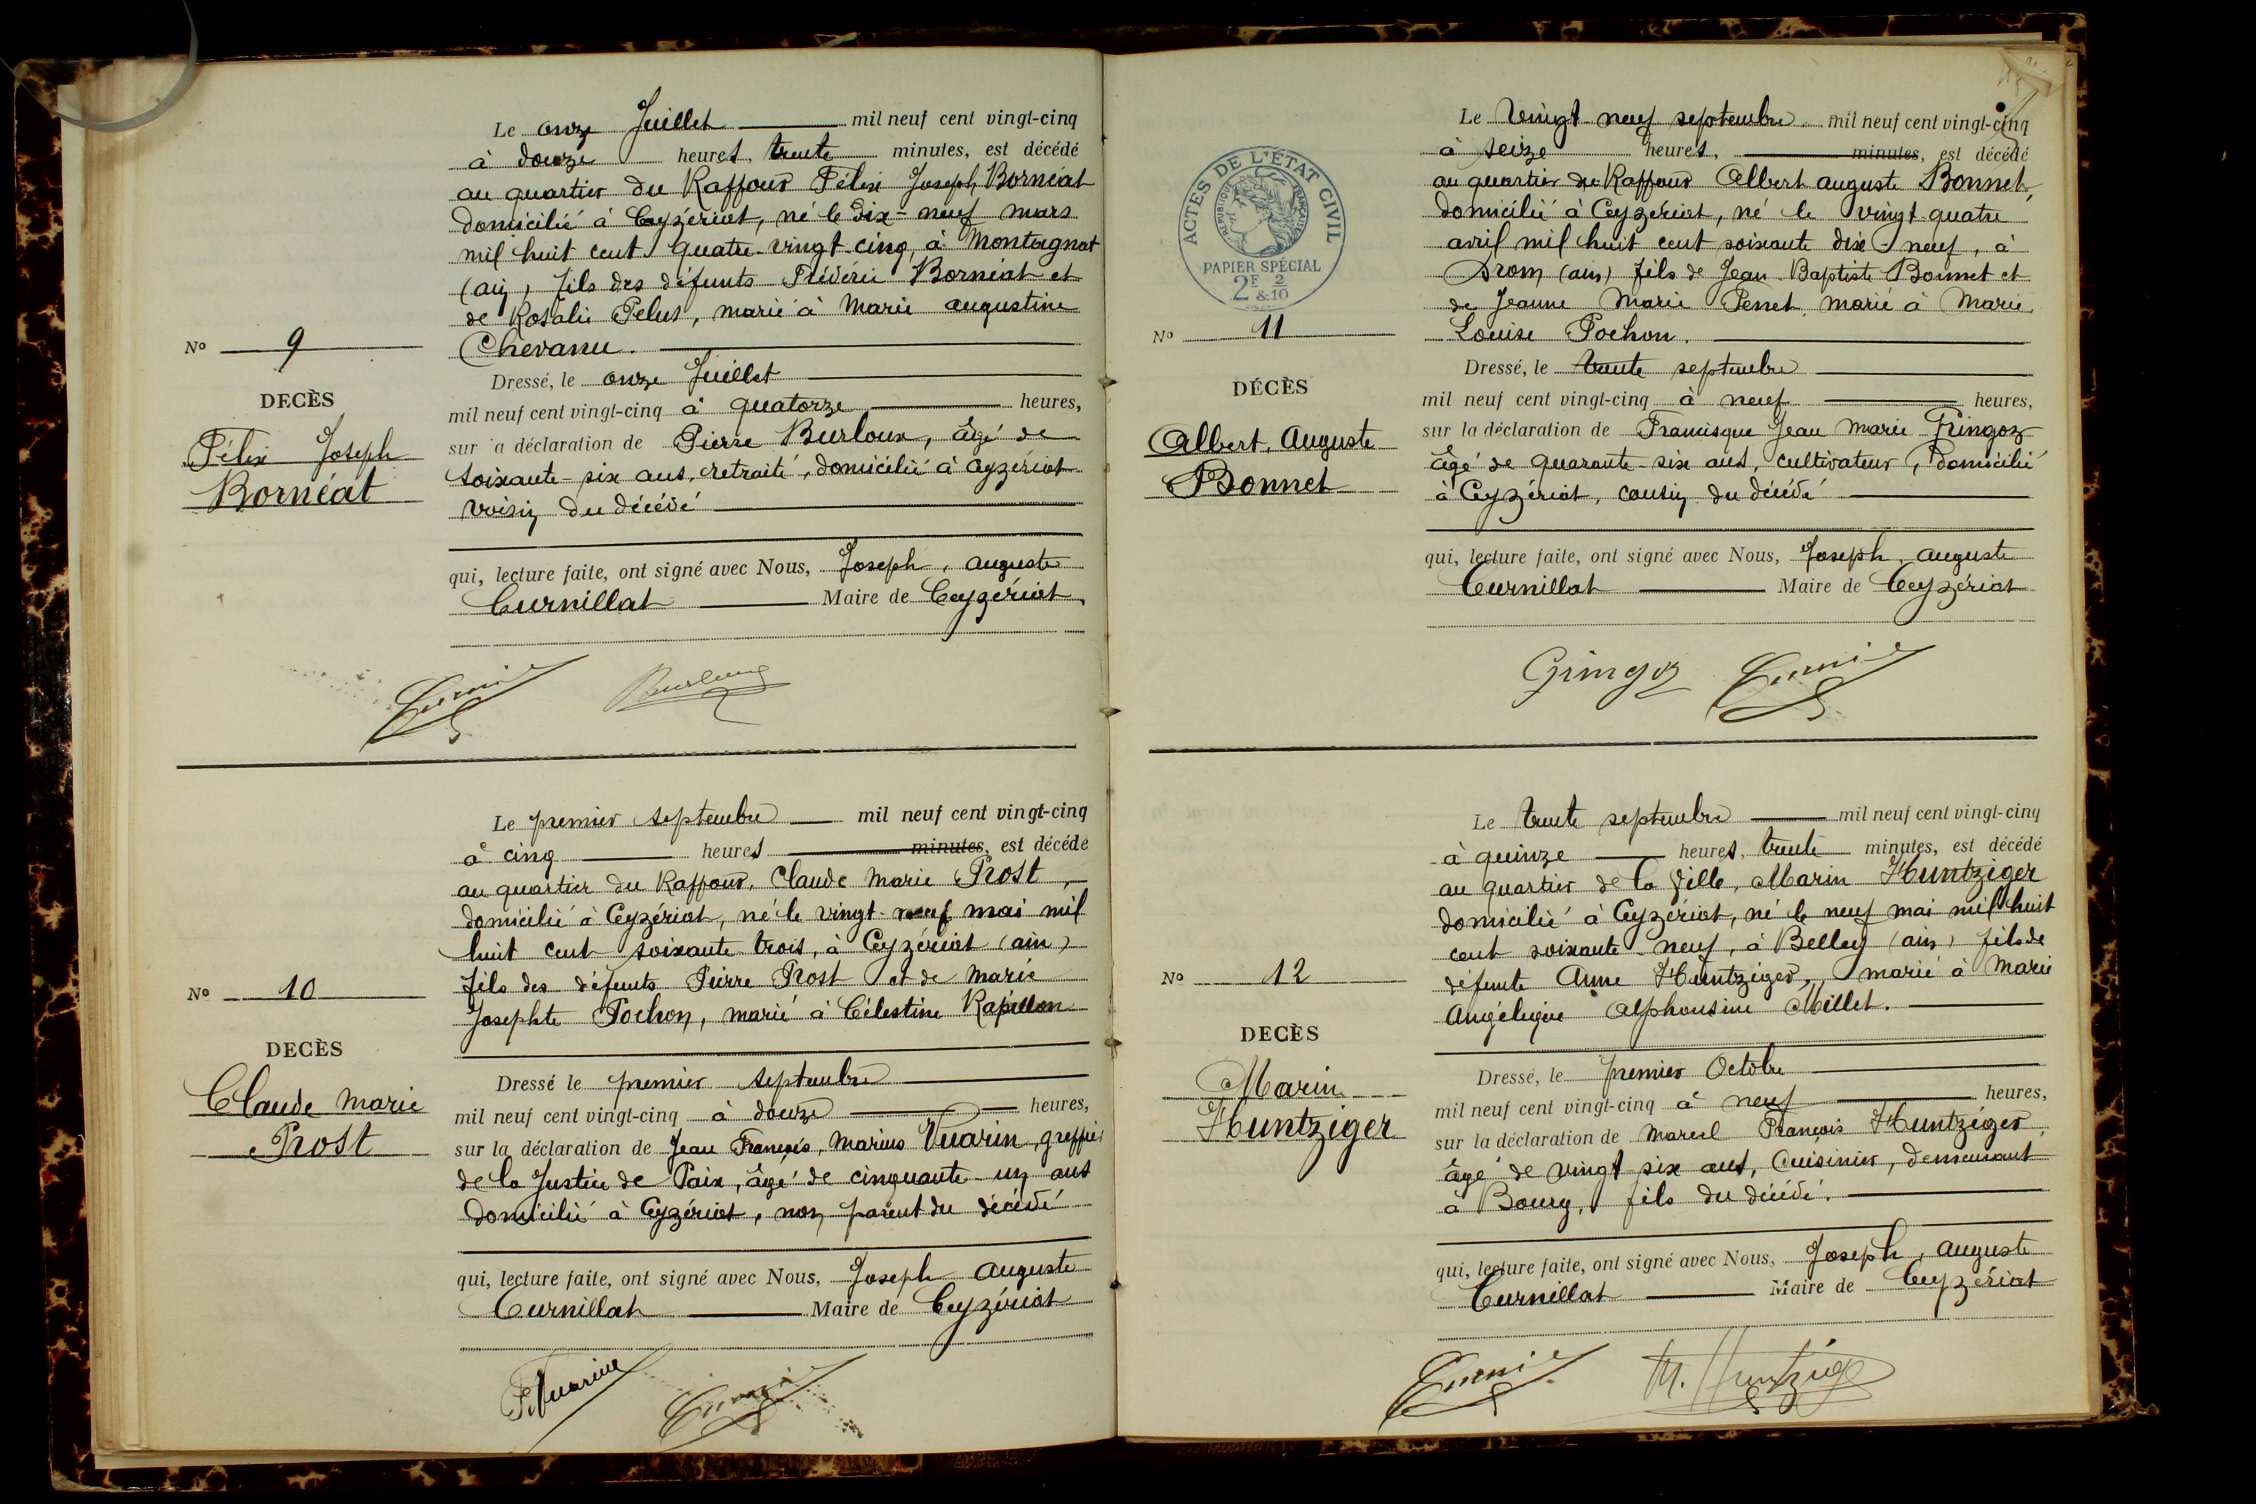 Le onze Juillet mil neuf cent vingt-cinq
à douze heures, trente minutes, est décédé
au quartier du Raffour Félix Joseph Bornéat
domicilié à Ceyzériat, né le dix-neuf mars
mil huit cent quatre-vingt-cinq, à Montagnat
(ain), fils des défunts Frédéric Bornéat et
de Rosalie Pelus, marié à Marie augustine
Chevanu.
Nº 9
Dressé, le onze Juillet
mil neuf cent vingt-cinq à quatorze heures,
DECÈS
sur a déclaration de Pierre Burloux, âgé de
Félix Joseph
soixante-six ans, retraité, domicilié à Ceyzériat
Bornéat
voisin du décédé
qui, lecture faite, ont signé avec Nous, Joseph, auguste
Curnillat Maire de Ceyzériat
Le premier septembre mil neuf cent vingt-cinq
à cinq heures minutes, est décédé
au quartier du Raffour, Claude Marie Prost,
domicilié à Ceyzériat, né le vingt-neuf mai mil
huit cent soixante trois, à Ceyzériat (ain)
fils des défunts Pierre Prost et de Marie
Nº 10
Josephte Pochon, marié à Célestine Rapillon
DECÈS
Dressé le premier septembre
Claude Marie
mil neuf cent vingt-cinq à douze heures,
Prost
sur la déclaration de Jean François, Marius Vuarin, greffier
de la Justice de Paix, âgé de cinquante-un ans
domicilié à Ceyzériat, non parent du décédé
qui, lecture faite, ont signé avec Nous, Joseph Auguste
Curnillat Maire de Ceyzériat
Vuarin
ACTES DE L'ÉTAT CIVIL
RÉPUBLIQUE FRANÇAISE
PAPIER SPÉCIAL
2F 2/&10
Le Vingt-neuf septembre mil neuf cent vingt-cinq
à seize heures, minutes, est décédé
au quartier du Raffour Albert auguste Bonnet,
domicilié à Ceyzériat, né le vingt-quatre
avril mil huit cent soixante dix-neuf, à
Drom (ain) fils de Jean Baptiste Bonnet et
de Jeanne Marie Penet, marié à Marie
Nº 11
Louise Pochon.
Dressé, le trente septembre
DÉCÈS
mil neuf cent vingt-cinq à neuf heures,
Albert, Auguste
sur la déclaration de Francisque Jean Marie Gringoz
Bonnet
âgé de quarante-six ans, cultivateur, domicilié
à Ceyzériat, cousin du décédé
qui, lecture faite, ont signé avec Nous, Joseph, auguste
Curnillat Maire de Ceyzériat
Gringoz
Le trente septembre mil neuf cent vingt-cinq
à quinze heures, trente minutes, est décédé
au quartier de la Ville, Marin Huntziger
domicilié à Ceyzériat, né le neuf mai mil huit
cent soixante-neuf, à Belley (ain) fils de
Nº 12
défunte Anne Huntziger, marié à Marie
Angélique Alphonsine Millet.
DECÈS
Dressé, le premier Octobre
Marin
mil neuf cent vingt-cinq à neuf heures,
Huntziger
sur la déclaration de Marcel François Huntziger,
âgé de vingt six ans, Cuisinier, demeurant
à Bourg, fils du décédé.
qui, lecture faite, ont signé avec Nous, Joseph, auguste
Curnillat Maire de Ceyzériat
M. Huntziger